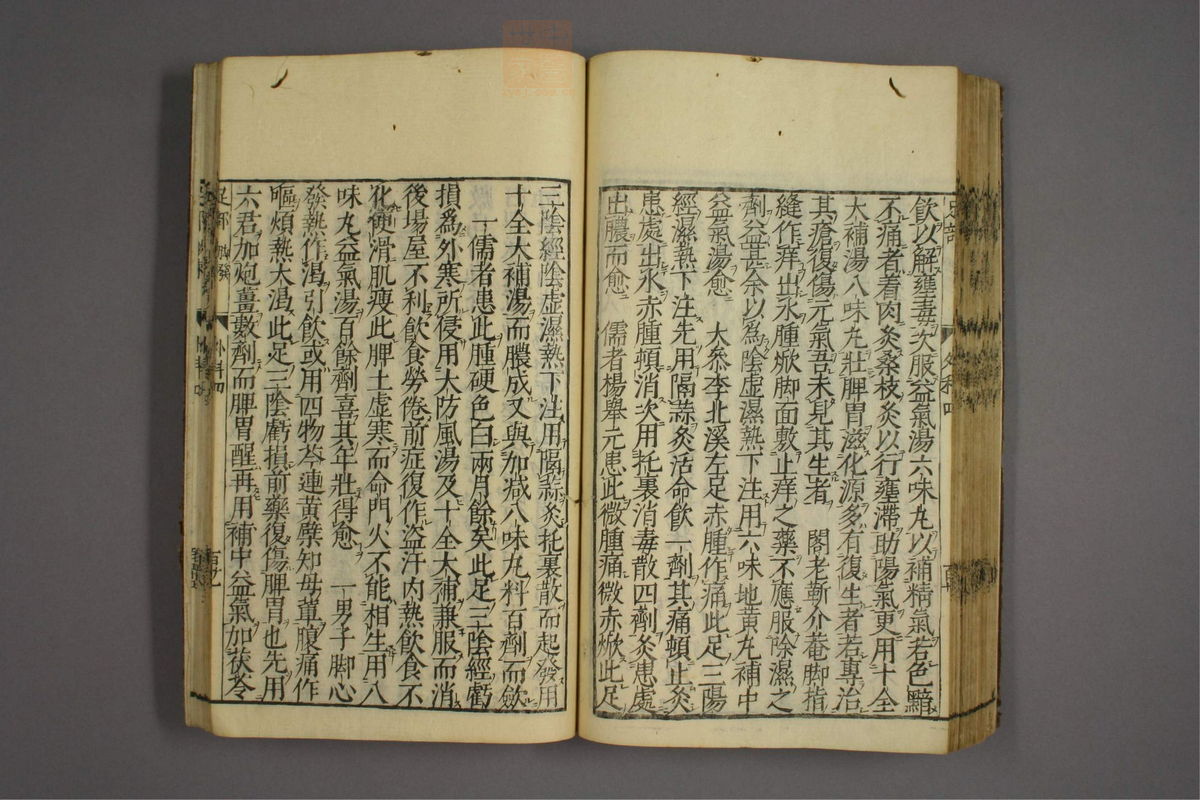 飲以解壅毒次服益氣湯六味丸以補精氣若色黯
不痛者着肉灸桑枝灸以行壅滯助陽氣更用十全
大補湯八味丸壯脾胃滋化源多有復生者若專治
其瘡復傷元氣吾未見其生者　閣老靳介菴脚指
縫作痒出水腫焮脚面敷止痒之藥不應服除濕之
劑益甚余以爲陰虚濕熱下注用六味地黄丸補中
益氣湯愈　大叅李北溪左足赤腫作痛此足三陽
經濕熱下注先用隔蒜灸活命飲一劑其痛頓止灸
患處出水赤腫頓消次用托裏消毒散四劑灸患處
出膿而愈　儒者楊舉元患此微腫痛微赤焮此足
三陰經陰虚濕熱下注用隔蒜灸托裏散而起發用
十全大補湯而膿成又與加减八味丸料百劑而歛
一儒者患此腫硬色白兩月餘矣此足三陰經虧
損爲外寒所侵用大防風湯及十全大補兼服而消
後場屋不利飲食勞倦前症復作盗汗内熱飲食不
化便滑肌瘦此脾土虚寒而命門火不能相生用八
味丸益氣湯百餘劑喜其年壯得愈　一男子脚心
發熱作渴引飲或用四物芩連黄蘗知母輩腹痛作
嘔煩熱大渴此足三陰虧損前藥復傷脾胃也先用
六君加炮薑數劑而脾胃醒再用補中益氣加茯苓
足部
外科四